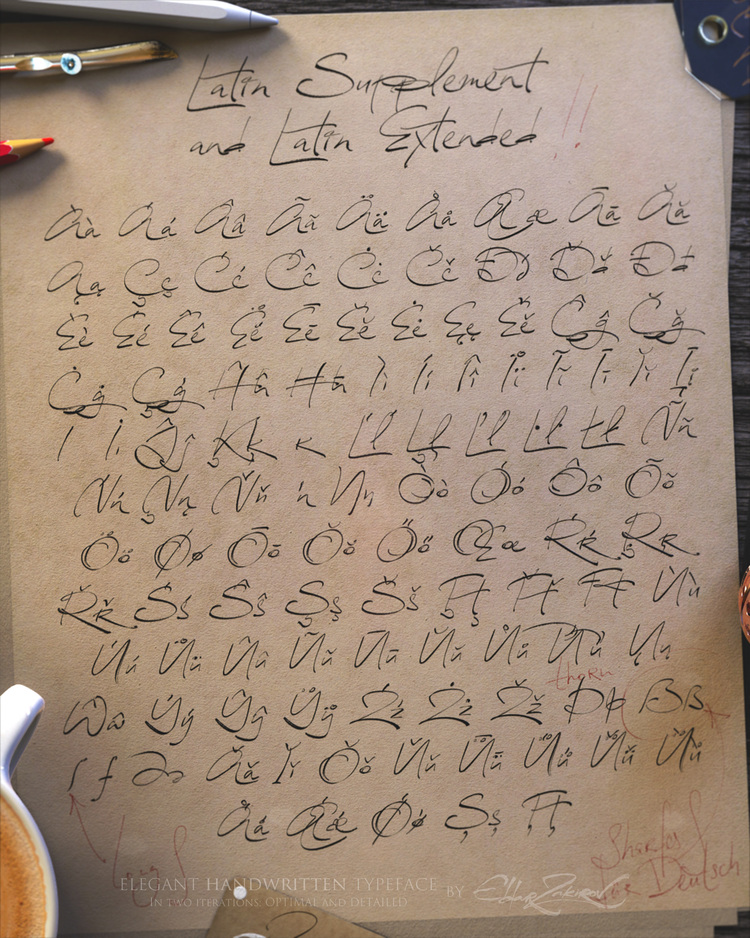 Latin Supplement
and Latin Extended !!
Àà Áá Ââ Ãã Ää Åå Ææ Āā Ăă
Ąą Çç Ćć Ĉĉ Ċċ Čč Ðð Ďď Đđ
Èè Éé Êê Ëë Ēē Ĕĕ Ėė Ęę Ěě Ĝĝ Ğğ
Ġġ Ģģ Ĥĥ Ħħ Ìì Íí Îî Ïï Ĩĩ Īī Ĭĭ Įį
ı İi Ĵĵ Ķķ ĸ Ĺĺ Ļļ Ľľ Ŀŀ Łł Ññ
Ńń Ņņ Ňň ŉ Ŋŋ Òò Óó Ôô Õõ
Öö Øø Ōō Ŏŏ Őő Œœ Ŕŕ Ŗŗ
Řř Śś Ŝŝ Şş Šš Ţţ Ťť Ŧŧ Ùù
Úú Üü Ûû Ũũ Ūū Ŭŭ Ůů Űű Ųų
thorn
Ŵŵ Ýý Ŷŷ Ÿÿ Źź Żż Žž Þþ ẞß
ſ ƒ Əə Ǎǎ Ǐǐ Ǒǒ Ǔǔ Ǖǖ Ǘǘ Ǚǚ Ǜǜ
Ǻǻ Ǽǽ Ǿǿ Șș Țț
Long S
Sharfes S
Deutsch
ELEGANT HANDWRITTEN TYPEFACE BY Eldar Zakirov
IN TWO ITERATIONS, OPTIMAL AND DETAILED